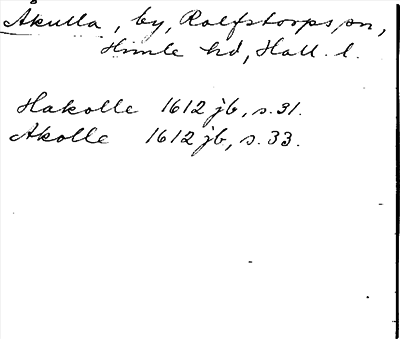 Åkulla, by, Rolfstorps sn,
Himle hd, Hall. l.
Hakolle 1612 jb, s. 31.
Akolle 1612 jb, s. 33.